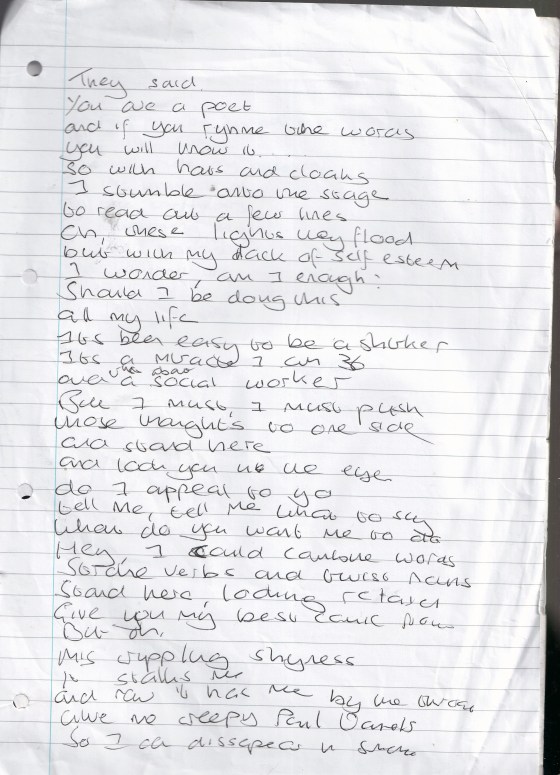 They said
You are a poet
and if you rynme the words
you will know it
So with hats and cloaks
I stumble onto the stage
to read out a few lines
Oh, these lights they flood
but with my lack of self esteem
I wonder, am I enough?
Should I be doing this
all my life
Its been easy to be a shirker
Its a miracle I am 36
and a social worker
But I must, I must push
those thoughts to one side
and stand here
and look you in the eye
do I appeal to yo
tell me, tell me what to say
what do you want me to do
Hey, I could words
verbs and twist nouns
Stand here, looking
Give you my best
But oh,
this crippling shyness
it stalks me
and now it has me by the throat
Give me creepy Paul Daniels
So I can dissapear in smoke